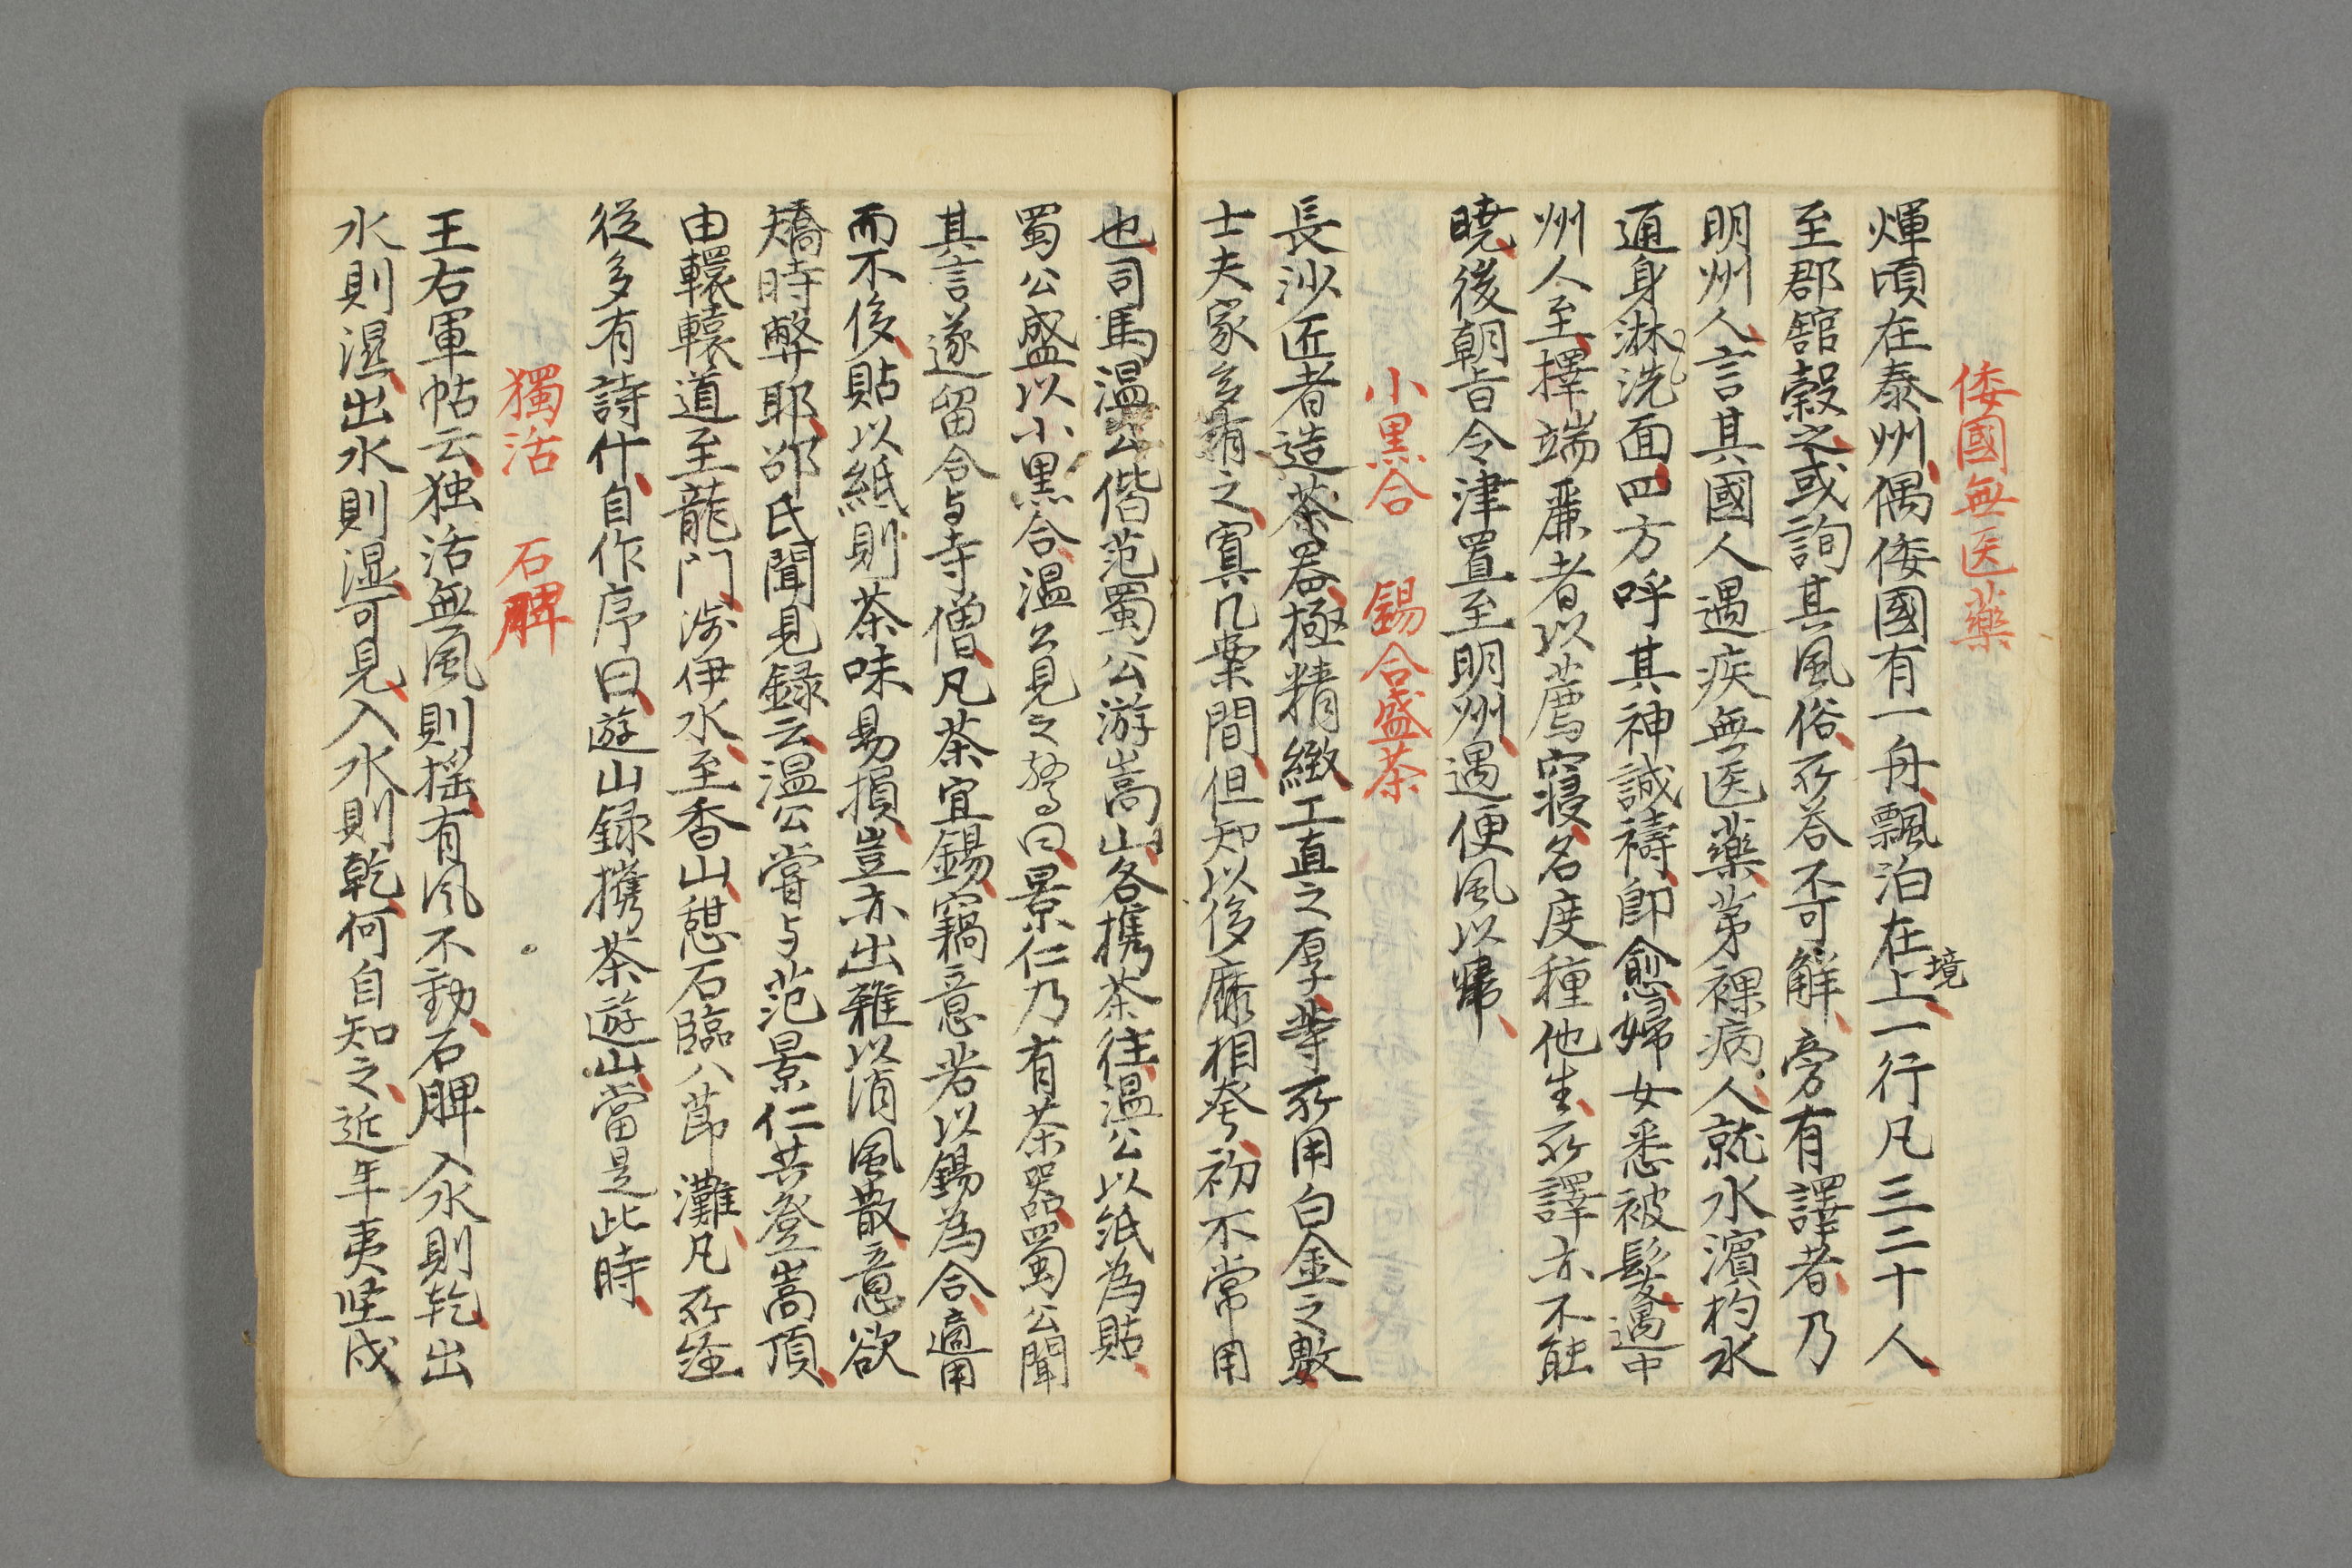 倭國無医薬
煇頃在泰州偶倭國有一舟飄泊在境上一行凡三二十人
至郡舘穀之或詢其風俗所答不可解旁有譯者乃
明州人言其國人遇疾無医薬苐裸病人就水濱杓水
通身淋洗面四方呼其神誠禱即愈婦女悉被髪遇中
州人至擇端麗者以薦寝名度種他生所譯亦不能
暁後朝旨令津置至明州遇便風以帰
小黒合　錫合盛茶
長沙匠者造茶器極精緻工直之厚等所用白金之數
士夫家多有之寘几案間但知以侈靡相夸初不常用
也司馬温公偕范蜀公游嵩山各携茶往温公以紙為貼
蜀公盛以小黒合温公見之驚曰景仁乃有茶器蜀公聞
其言遂留合与寺僧凡茶宜錫竊意若以錫為合適用
而不侈貼以紙則茶味易損豈亦出雜以消風散意欲
矯時弊耶邵氏聞見録云温公嘗与范景仁共登嵩頂
由轘轅道至龍門渉伊水至香山憩石臨八莭灘凡所経
従多有詩什自作序曰遊山録携茶遊山當是此時
獨活　石脾
王右軍帖云独活無風則揺有风不動石脾入水則乾出
水則湿出水則湿可見入水則乾何自知之近年夷堅戊